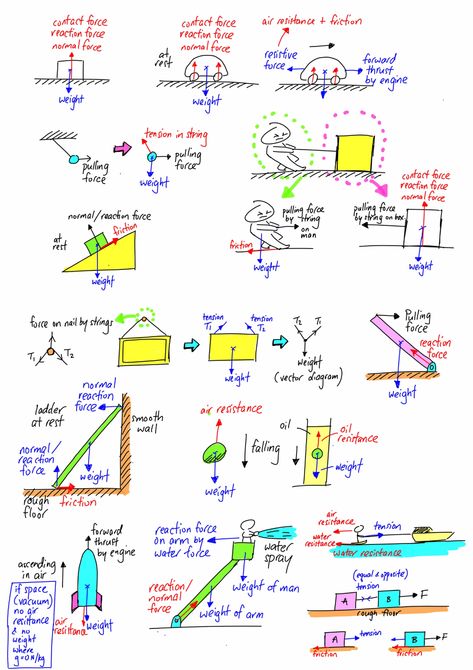 contact force
reaction force
normal force
weight
at rest
contact force
reaction force
normal force
weight
air resistance + friction
resistive force
forward thrust by engine
weight
pulling force
tension in string
pulling force
weight
pulling force by string on man
friction
weight
pulling force by string on box
contact force
reaction force
normal force
weight
normal/reaction force
at rest
friction
weight
force on nail by strings
T₁
T₂
tension T₁
tension T₂
weight
T₂
T₁
weight
(vector diagram)
Pulling force
reaction force
weight
ladder at rest
normal reaction force
smooth wall
normal/reaction force
weight
rough floor
friction
air resistance
falling
weight
oil
oil resistance
weight
ascending in air
forward thrust by engine
air resistance
weight
if space
(vacuum)
no air
resistance
& no
weight
where
g=0N/kg
reaction force on arm by water force
water spray
reaction/normal force
weight of man
weight of arm
air resistance
water resistance
tension
water resistance
(equal & opposite)
A
B
F
rough floor
A
tension
friction
tension
B
F
friction